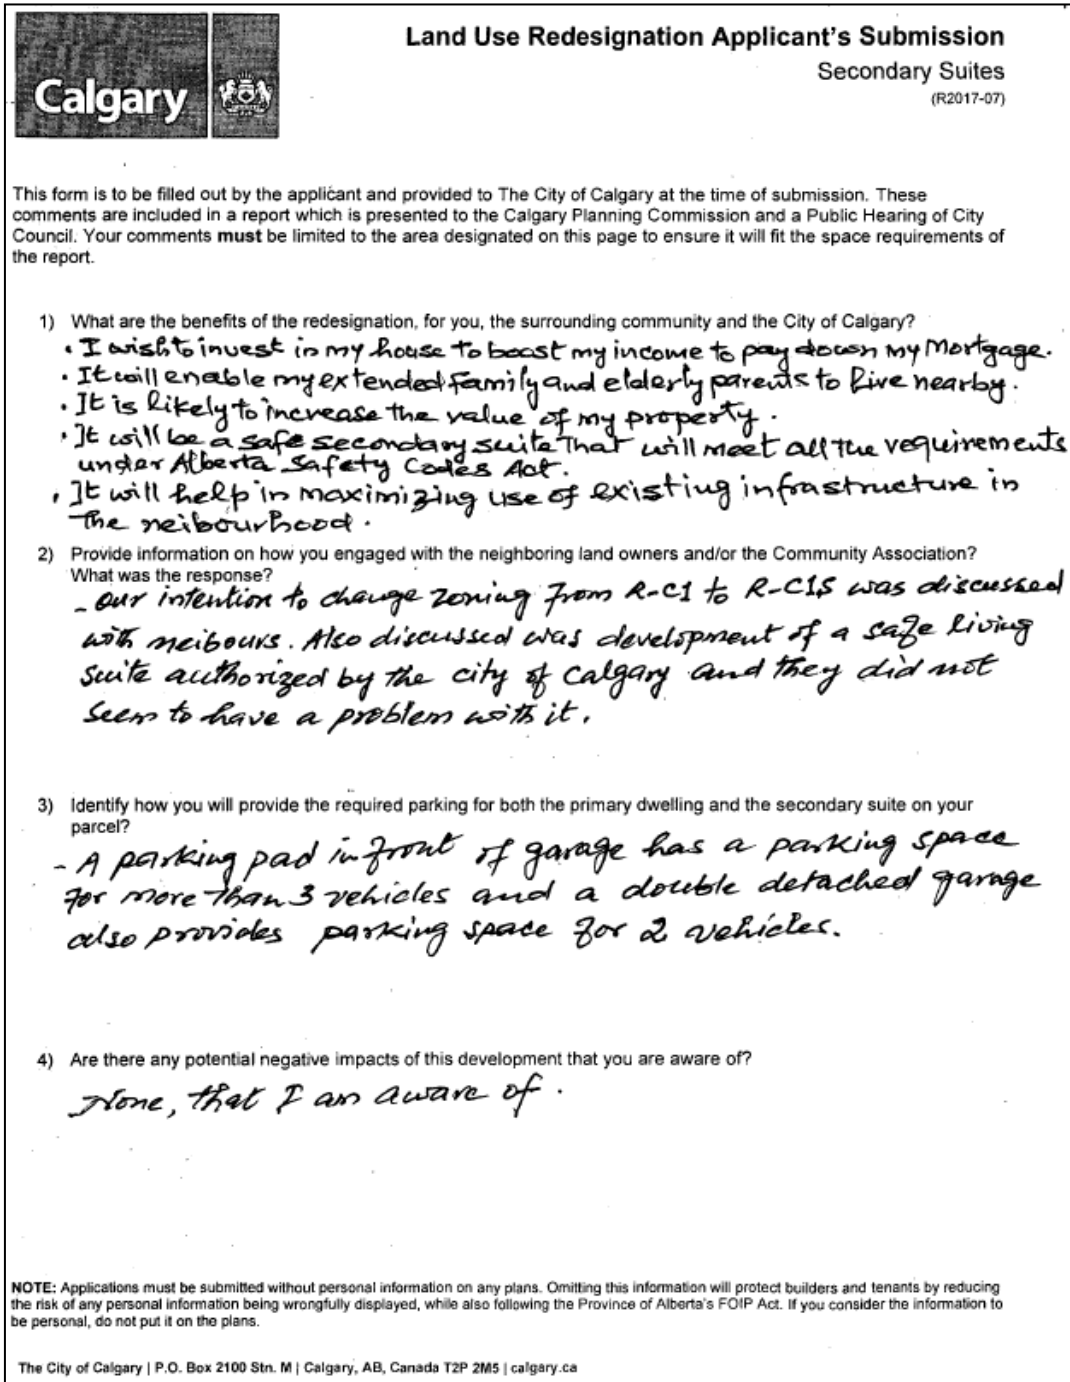 Calgary
Land Use Redesignation Applicant's Submission
Secondary Suites
(R2017-07)
This form is to be filled out by the applicant and provided to The City of Calgary at the time of submission. These
comments are included in a report which is presented to the Calgary Planning Commission and a Public Hearing of City
Council. Your comments must be limited to the area designated on this page to ensure it will fit the space requirements of
the report.
1) What are the benefits of the redesignation, for you, the surrounding community and the City of Calgary?
• I wish to invest in my house to boost my income to pay down my Mortgage.
• It will enable my extended family and elderly parents to live nearby.
• It is likely to increase the value of my property.
• It will be a safe secondary suite that will meet all the requirements
under Alberta Safety Codes Act.
• It will help in maximizing use of existing infrastructure in
the neibourhood.
2) Provide information on how you engaged with the neighboring land owners and/or the Community Association?
What was the response?
- Our intention to change zoning from R-C1 to R-C1S was discussed
with neibours. Also discussed was development of a safe living
suite authorized by the city of Calgary and they did not
seem to have a problem with it.
3) Identify how you will provide the required parking for both the primary dwelling and the secondary suite on your
parcel?
- A parking pad in front of garage has a parking space
for more than 3 vehicles and a double detached garage
also provides parking space for 2 vehicles.
4) Are there any potential negative impacts of this development that you are aware of?
None, that I am aware of.
NOTE: Applications must be submitted without personal information on any plans. Omitting this information will protect builders and tenants by reducing
the risk of any personal information being wrongfully displayed, while also following the Province of Alberta's FOIP Act. If you consider the information to
be personal, do not put it on the plans.
The City of Calgary | P.O. Box 2100 Stn. M | Calgary, AB, Canada T2P 2M5 | calgary.ca